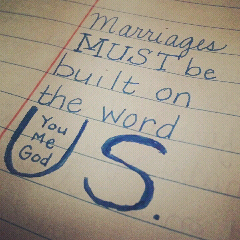 Marriages
MUST be
built on
the word
US.
You
Me
God